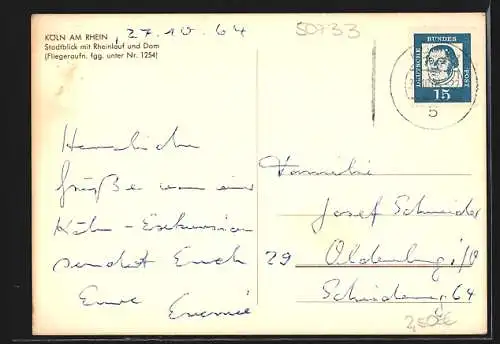 KÖLN AM RHEIN
Stadtblick mit Rheinlauf und Dom
(Fliegeraufn. fgg. unter Nr. 1254)
, 27.10.64
50733
DEUTSCHE
BUNDES
POST
15
5
Herzliche
Grüße von einer
Köln - Exkursion
sendet Euch
Eure
Familie
Josef Schneider
29 Oldenburg i/O
64